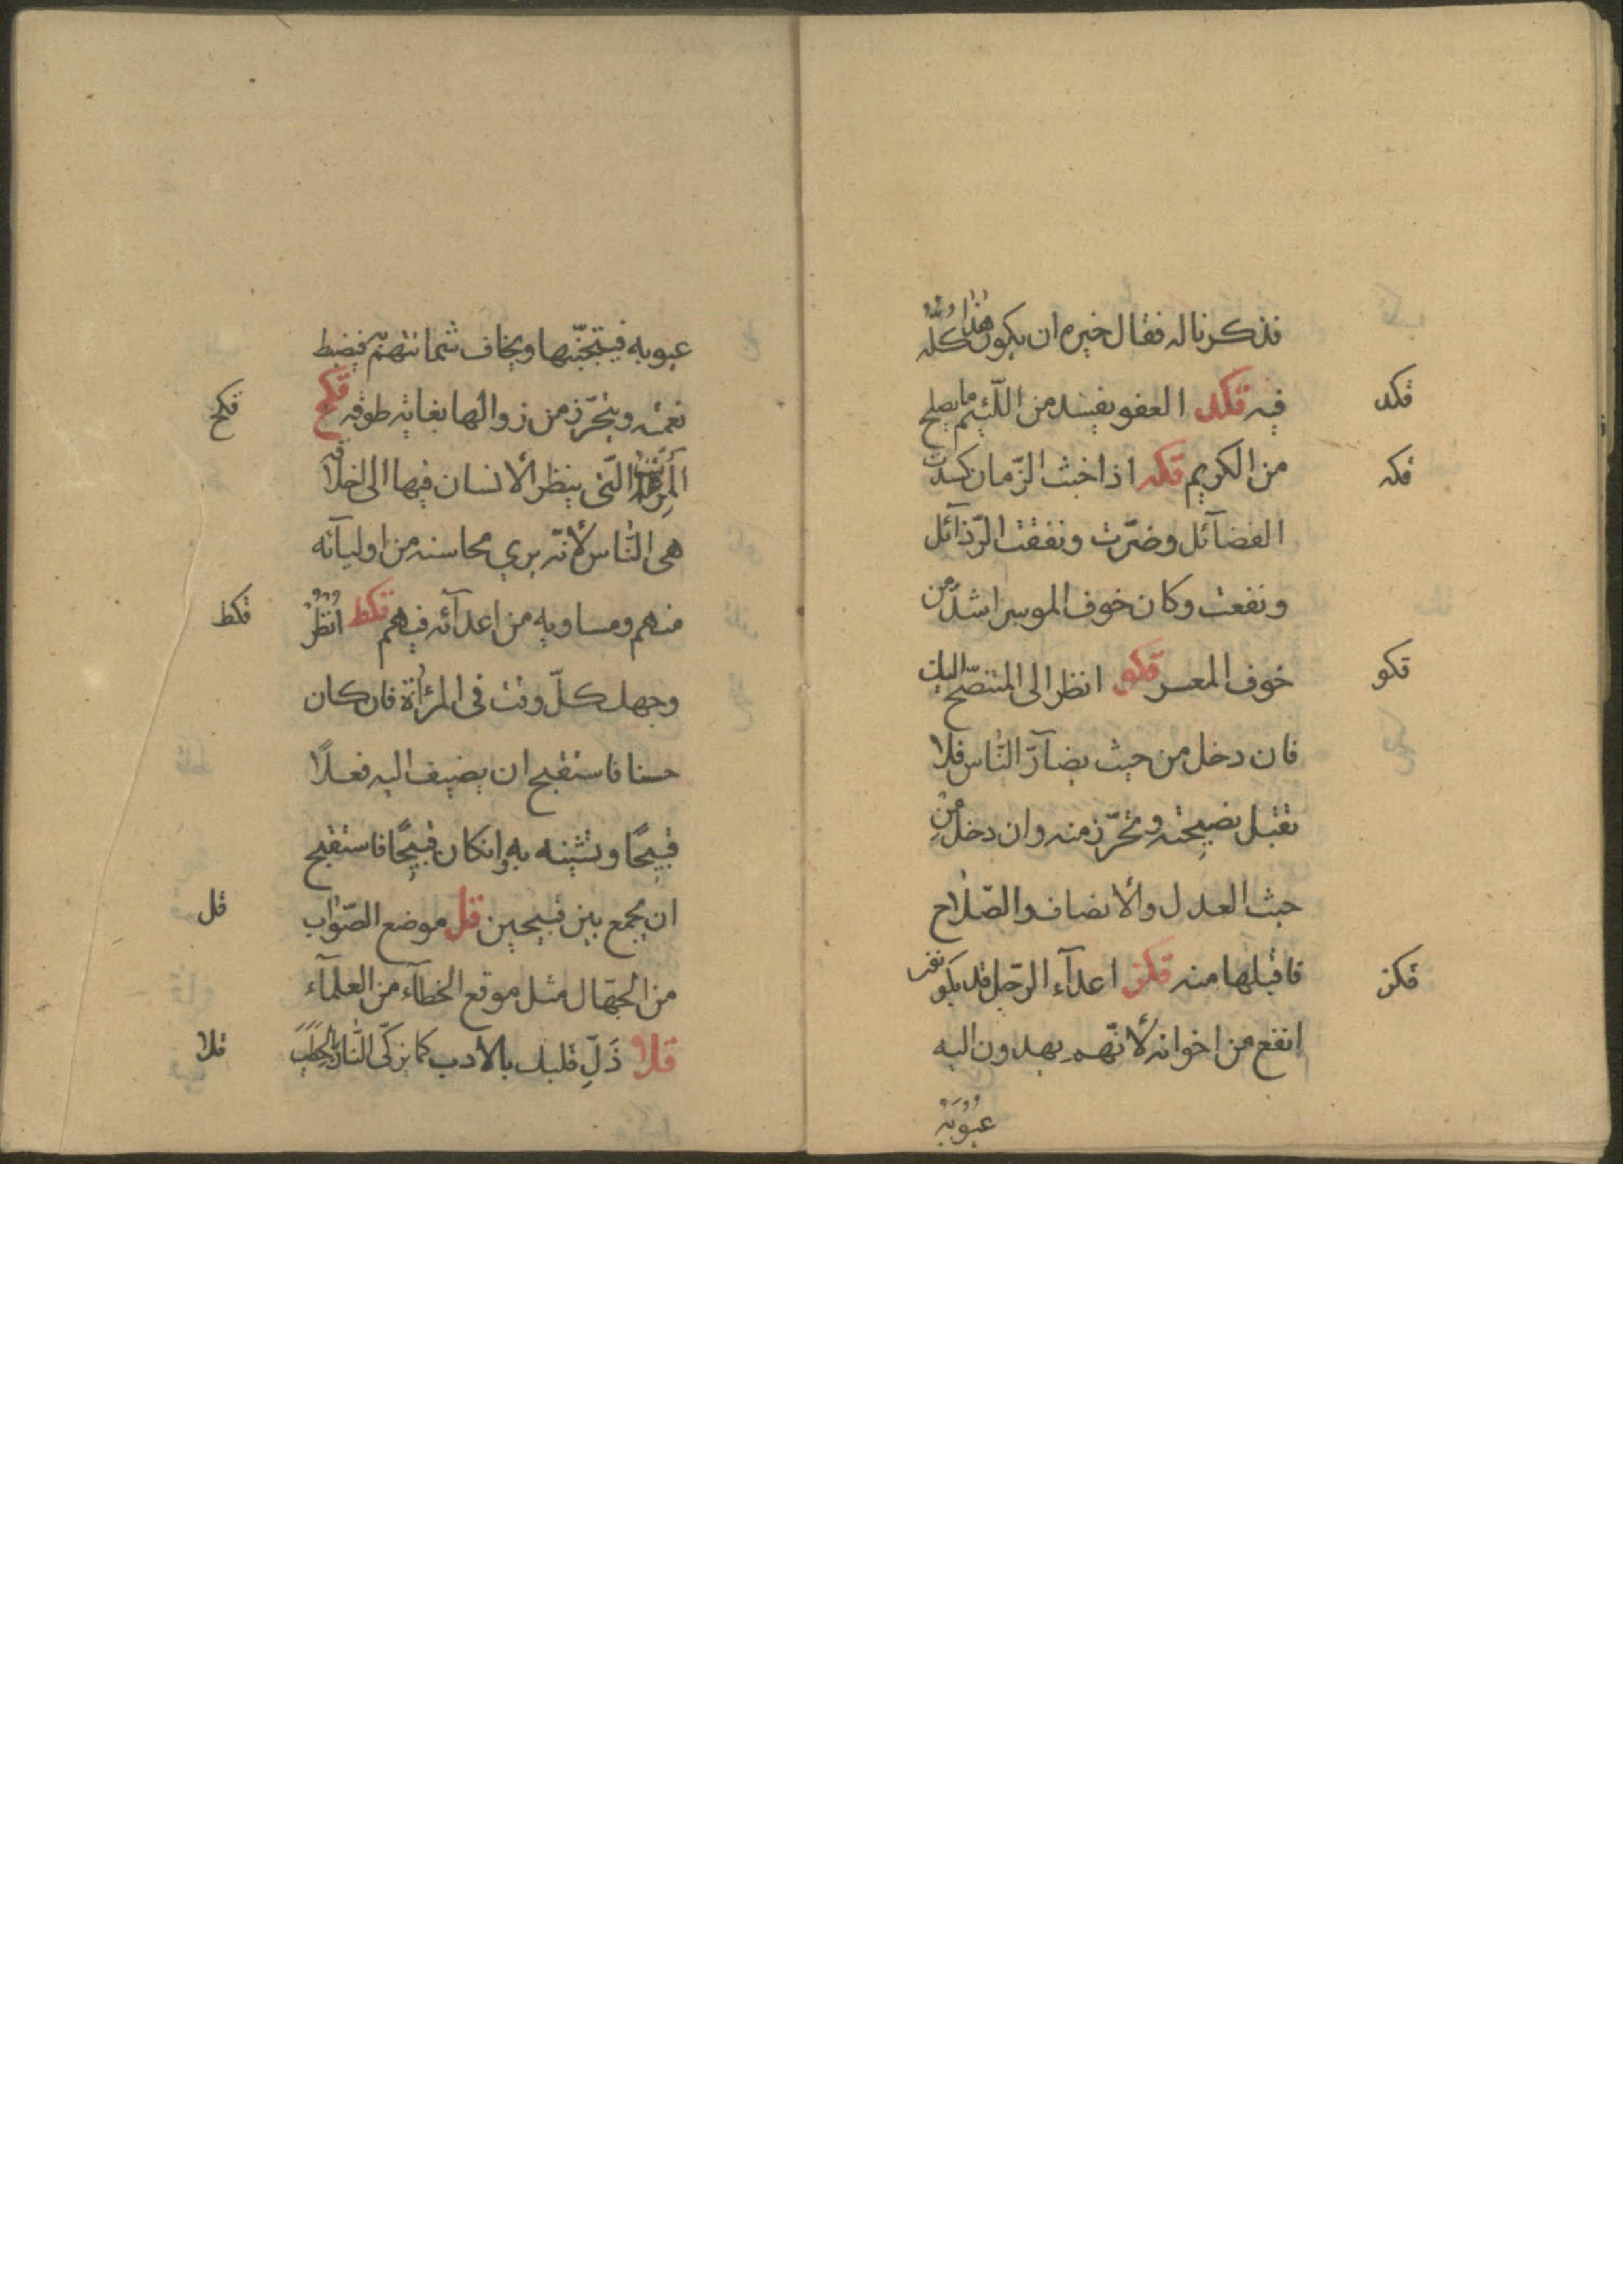 فذكرنا له فقال خيره ان يكون هذا كلّه
فيه قكد العفو يفسد من اللّئيم ما يصلح
قكد
من الكريم قكه اذا خبث الزّمان كسدت
قكه
الفضآئل وضرّت ونفقت الرّذآئل
ونفعت وكان خوف الموسر اشدّ من
خوف المعسر قكو انظر الى المتنصّح اليك
قكو
فان دخل من حيث يضآرّ النّاس فلا
تقبل نصيحته وتحرّز منه وان دخل من
حيث العدل والانصاف والصّلاح
فاقبلها منه قكز اعدآء الرّجل قد يكو نفر
قكز
انفع من اخوانه لانّهم يهدون اليه
عيوبه
عيوبه فيتجنّبها ويخاف شماتتهم فيضبط
نعمته ويتحرّز من زوالها بغاية طوقه قكح
قكح
المرآة الّتى ينظر الانسان فيها الى اخلاقه
هى النّاس لانّه يرى محاسنه من اوليآئه
منهم ومساويه من اعدآئه فيهم قكط انظر
قكط
وجهك كلّ وقت فى المرأة فان كان
حسنا فاستقبح ان يضيف اليه فعلًا
قبيحًا وتشينه به وانكان قبيحًا فاستقبح
ان يجمع بين قبيحين قل موضع الصّواب
قل
من الجهّال مثل موقع الخطآء من العلمآء
قلا ذَلِّ قلبك بالادب كما يزكّى النّار بالحطب
قلا